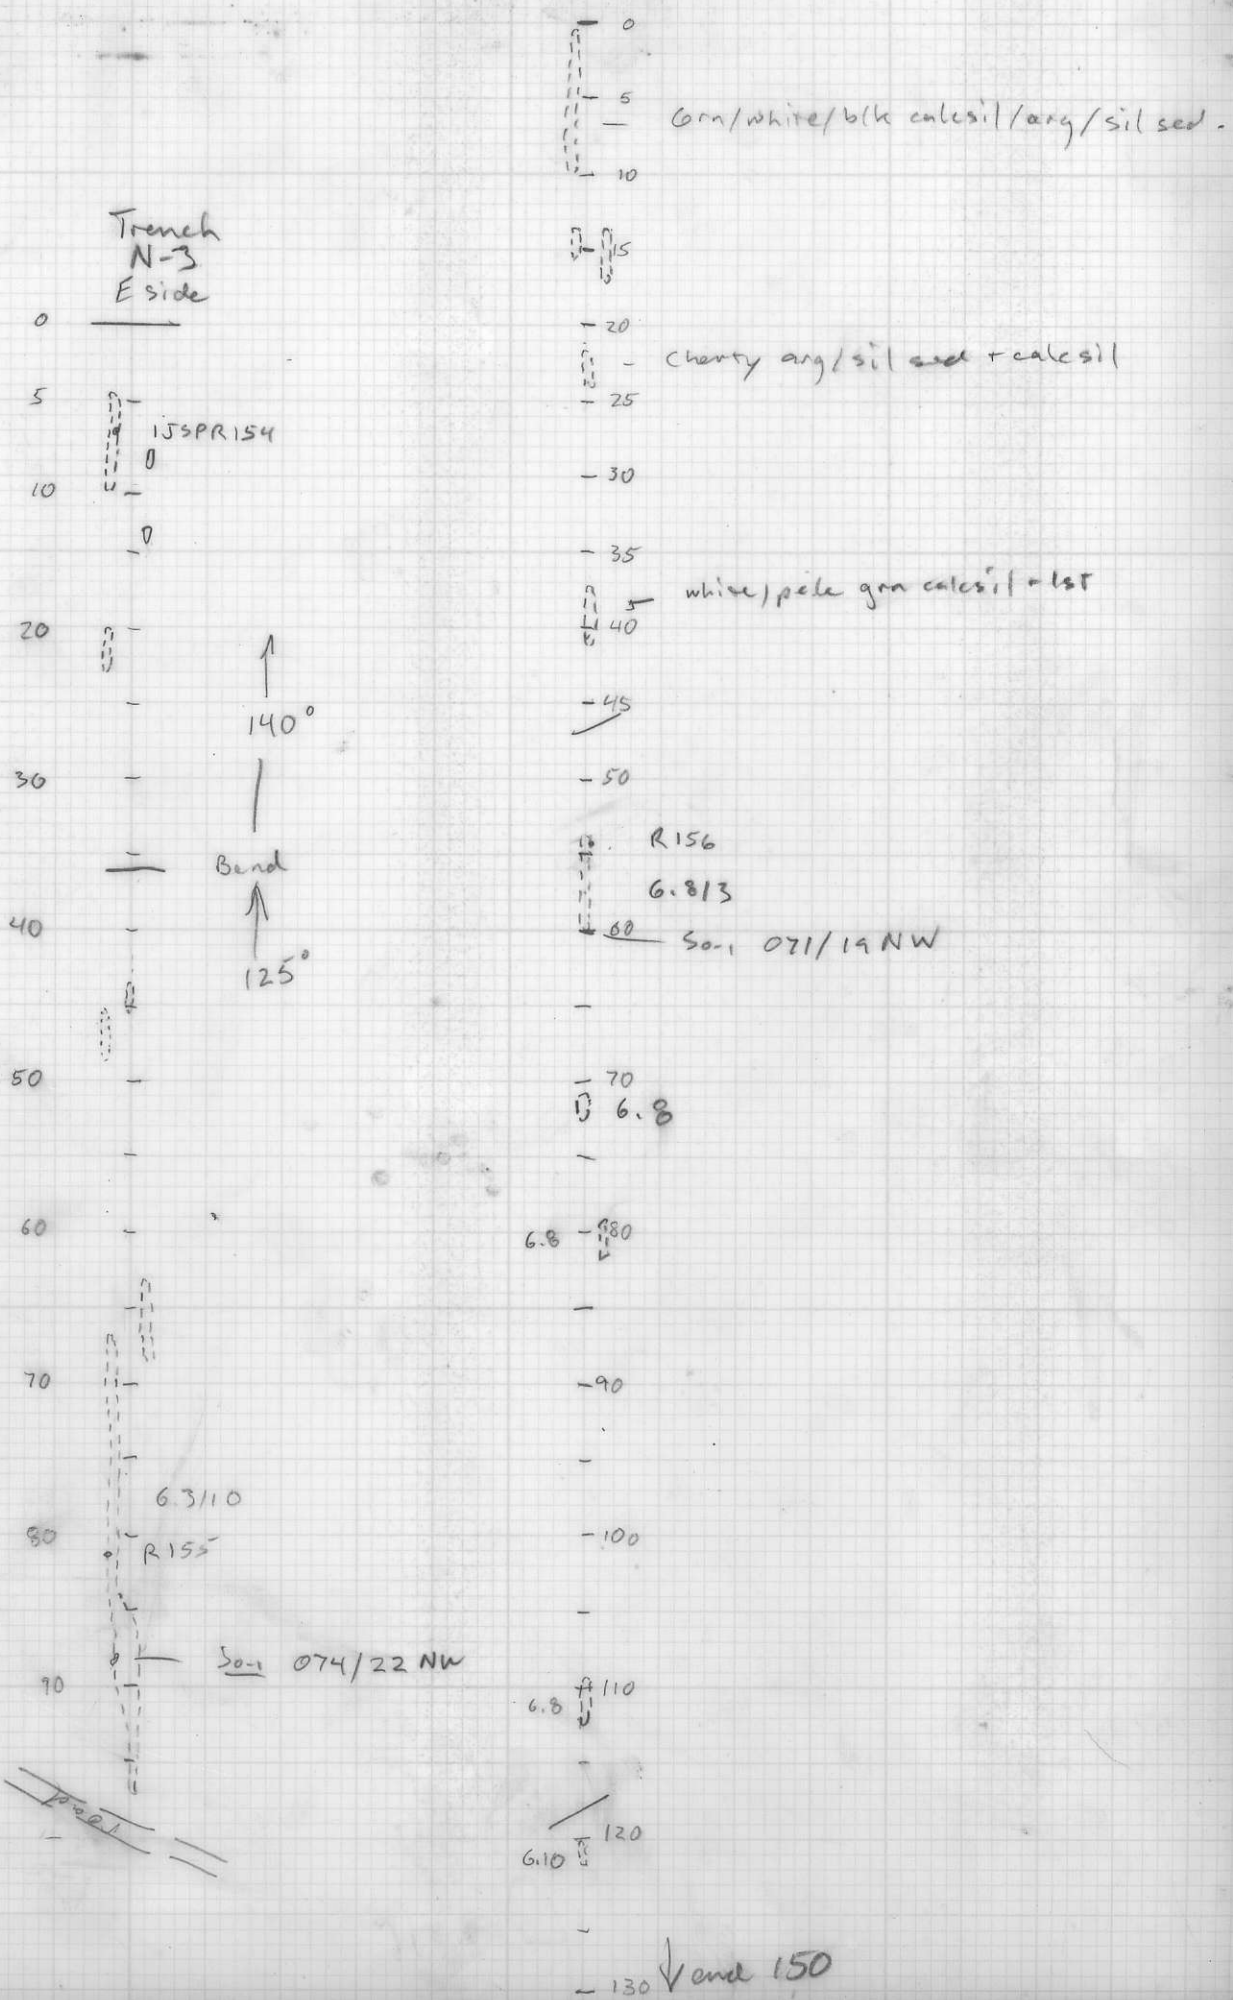 Trench
N-3
E side
0
5
15SPR154
10
20
140°
30
Bend
40
125°
50
60
70
6.3/10
80
R155
So-1 074/22 NW
90
road
0
5
Grn/white/blk calcsil/arg/sil sed.
10
15
20
cherty arg/sil sed + calcsil
25
30
35
white/pale grn calcsil + lst
40
45
50
R156
6.8/3
60
So-1 071/19 NW
70
6.8
6.8 80
90
100
6.8 110
120
6.10
130 end 150